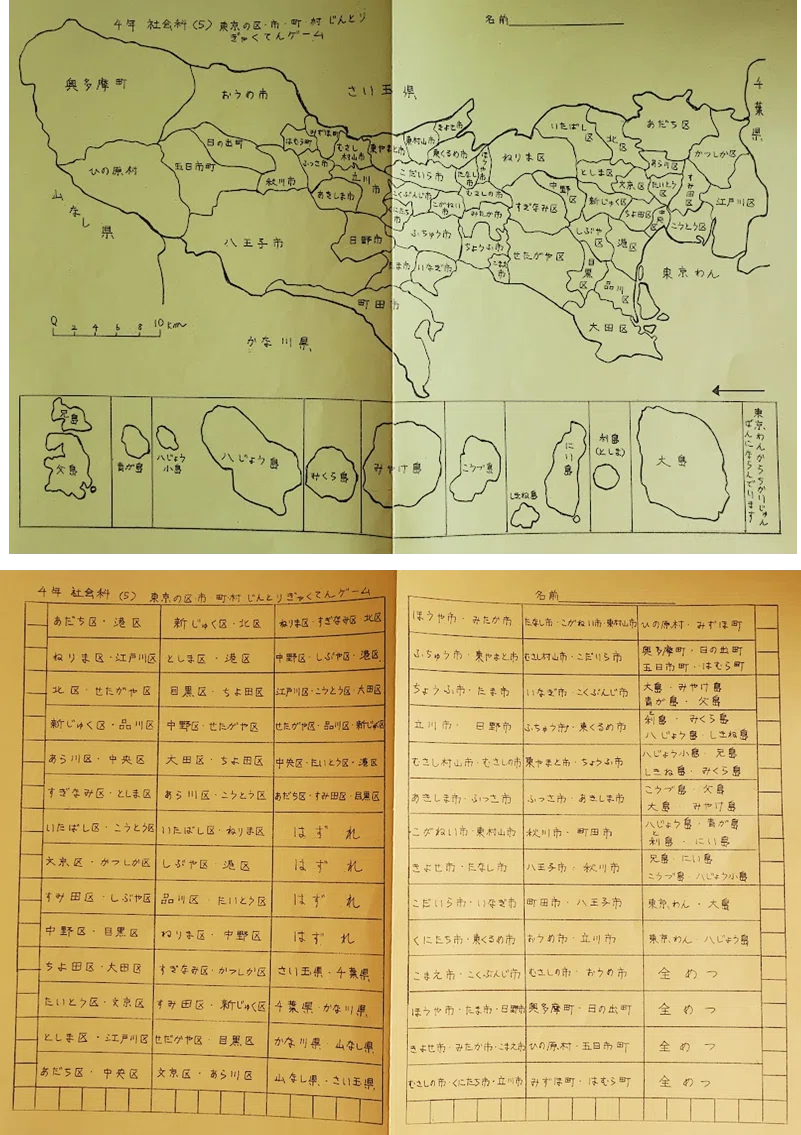 4年 社会科(5) 東京の区・市・町・村 じんとり
ぎゃくてんゲーム
名前
奥多摩町
おうめ市
さい玉県
千葉県
日の出町
ひの原村
五日市町
秋川市
はむら町
みずほ町
むさし村山市
東やまと市
ふっさ市
立川市
あきしま市
八王子市
日野市
山なし県
町田市
かな川県
0 2 4 6 8 10km
きよせ市
東村山市
東くるめ市
ほうや市
こだいら市
たなし市
こくぶんじ市
こがねい市
むさしの市
みたか市
くにたち市
ふちゅう市
ちょうふ市
こまえ市
たま市
いなぎ市
ねりま区
いたばし区
北区
あだち区
かつしか区
あら川区
としま区
文京区
たいとう区
すみ田区
中野区
すぎなみ区
新じゅく区
ちよ田区
中央区
こうとう区
江戸川区
しぶや区
港区
せたがや区
目黒区
品川区
大田区
東京わん
兄島
父島
青が島
八じょう小島
八じょう島
みくら島
みやけ島
こうづ島
しきね島
にい島
利島
(としま)
大島
東京わんからちかいじゅんばんにならんでいます
4年 社会科 (5) 東京の区・市・町・村 じんとりぎゃくてんゲーム
名前
あだち区・港区 新じゅく区・北区 ねりま区・すぎなみ区・北区
ねりま区・江戸川区 としま区・港区 中野区・しぶや区・港区
北区・せたがや区 目黒区・ちよ田区 江戸川区・こうとう区・大田区
新じゅく区・品川区 中野区・せたがや区 せたがや区・品川区・新じゅく区
あら川区・中央区 大田区・ちよ田区 中央区・たいとう区・港区
すぎなみ区・としま区 あら川区・こうとう区 あだち区・すみ田区・目黒区
いたばし区・こうとう区 いたばし区・ねりま区 はずれ
文京区・かつしか区 しぶや区・港区 はずれ
すみ田区・しぶや区 品川区・たいとう区 はずれ
中野区・目黒区 ねりま区・中野区 はずれ
ちよ田区・大田区 すぎなみ区・かつしか区 さい玉県・千葉県
たいとう区・文京区 すみ田区・新じゅく区 千葉県・かな川県
としま区・江戸川区 せたがや区・目黒区 かな川県・山なし県
あだち区・中央区 文京区・あら川区 山なし県・さい玉県
ほうや市・みたか市 たなし市・こがねい市・東村山市 ひの原村・みずほ町
ふちゅう市・東やまと市 むさし村山市・こだいら市 奥多摩町・日の出町
五日市町・はむら町
ちょうふ市・たま市 いなぎ市・こくぶんじ市 大島・みやけ島
青が島・父島
立川市・日野市 ふちゅう市・東くるめ市 利島・みくら島
八じょう島・しきね島
むさし村山市・むさしの市 東やまと市・ちょうふ市 八じょう小島・兄島
しきね島・みくら島
あきしま市・ふっさ市 ふっさ市・あきしま市 こうづ島・父島
大島 みやけ島
こがねい市・東村山市 秋川市・町田市 八じょう島・青が島
利島・にい島
きよせ市・たなし市 八王子市・秋川市 兄島・にい島
こうづ島・八じょう小島
こだいら市・いなぎ市 町田市・八王子市 東京わん・大島
くにたち市・東くるめ市 おうめ市・立川市 東京わん・八じょう島
こまえ市・こくぶんじ市 むさしの市・おうめ市 全めつ
ほうや市・たま市・日野市 奥多摩町・日の出町 全めつ
きよせ市・みたか市・こまえ市 ひの原村・五日市町 全めつ
むさしの市・くにたち市・立川市 みずほ町・はむら町 全めつ